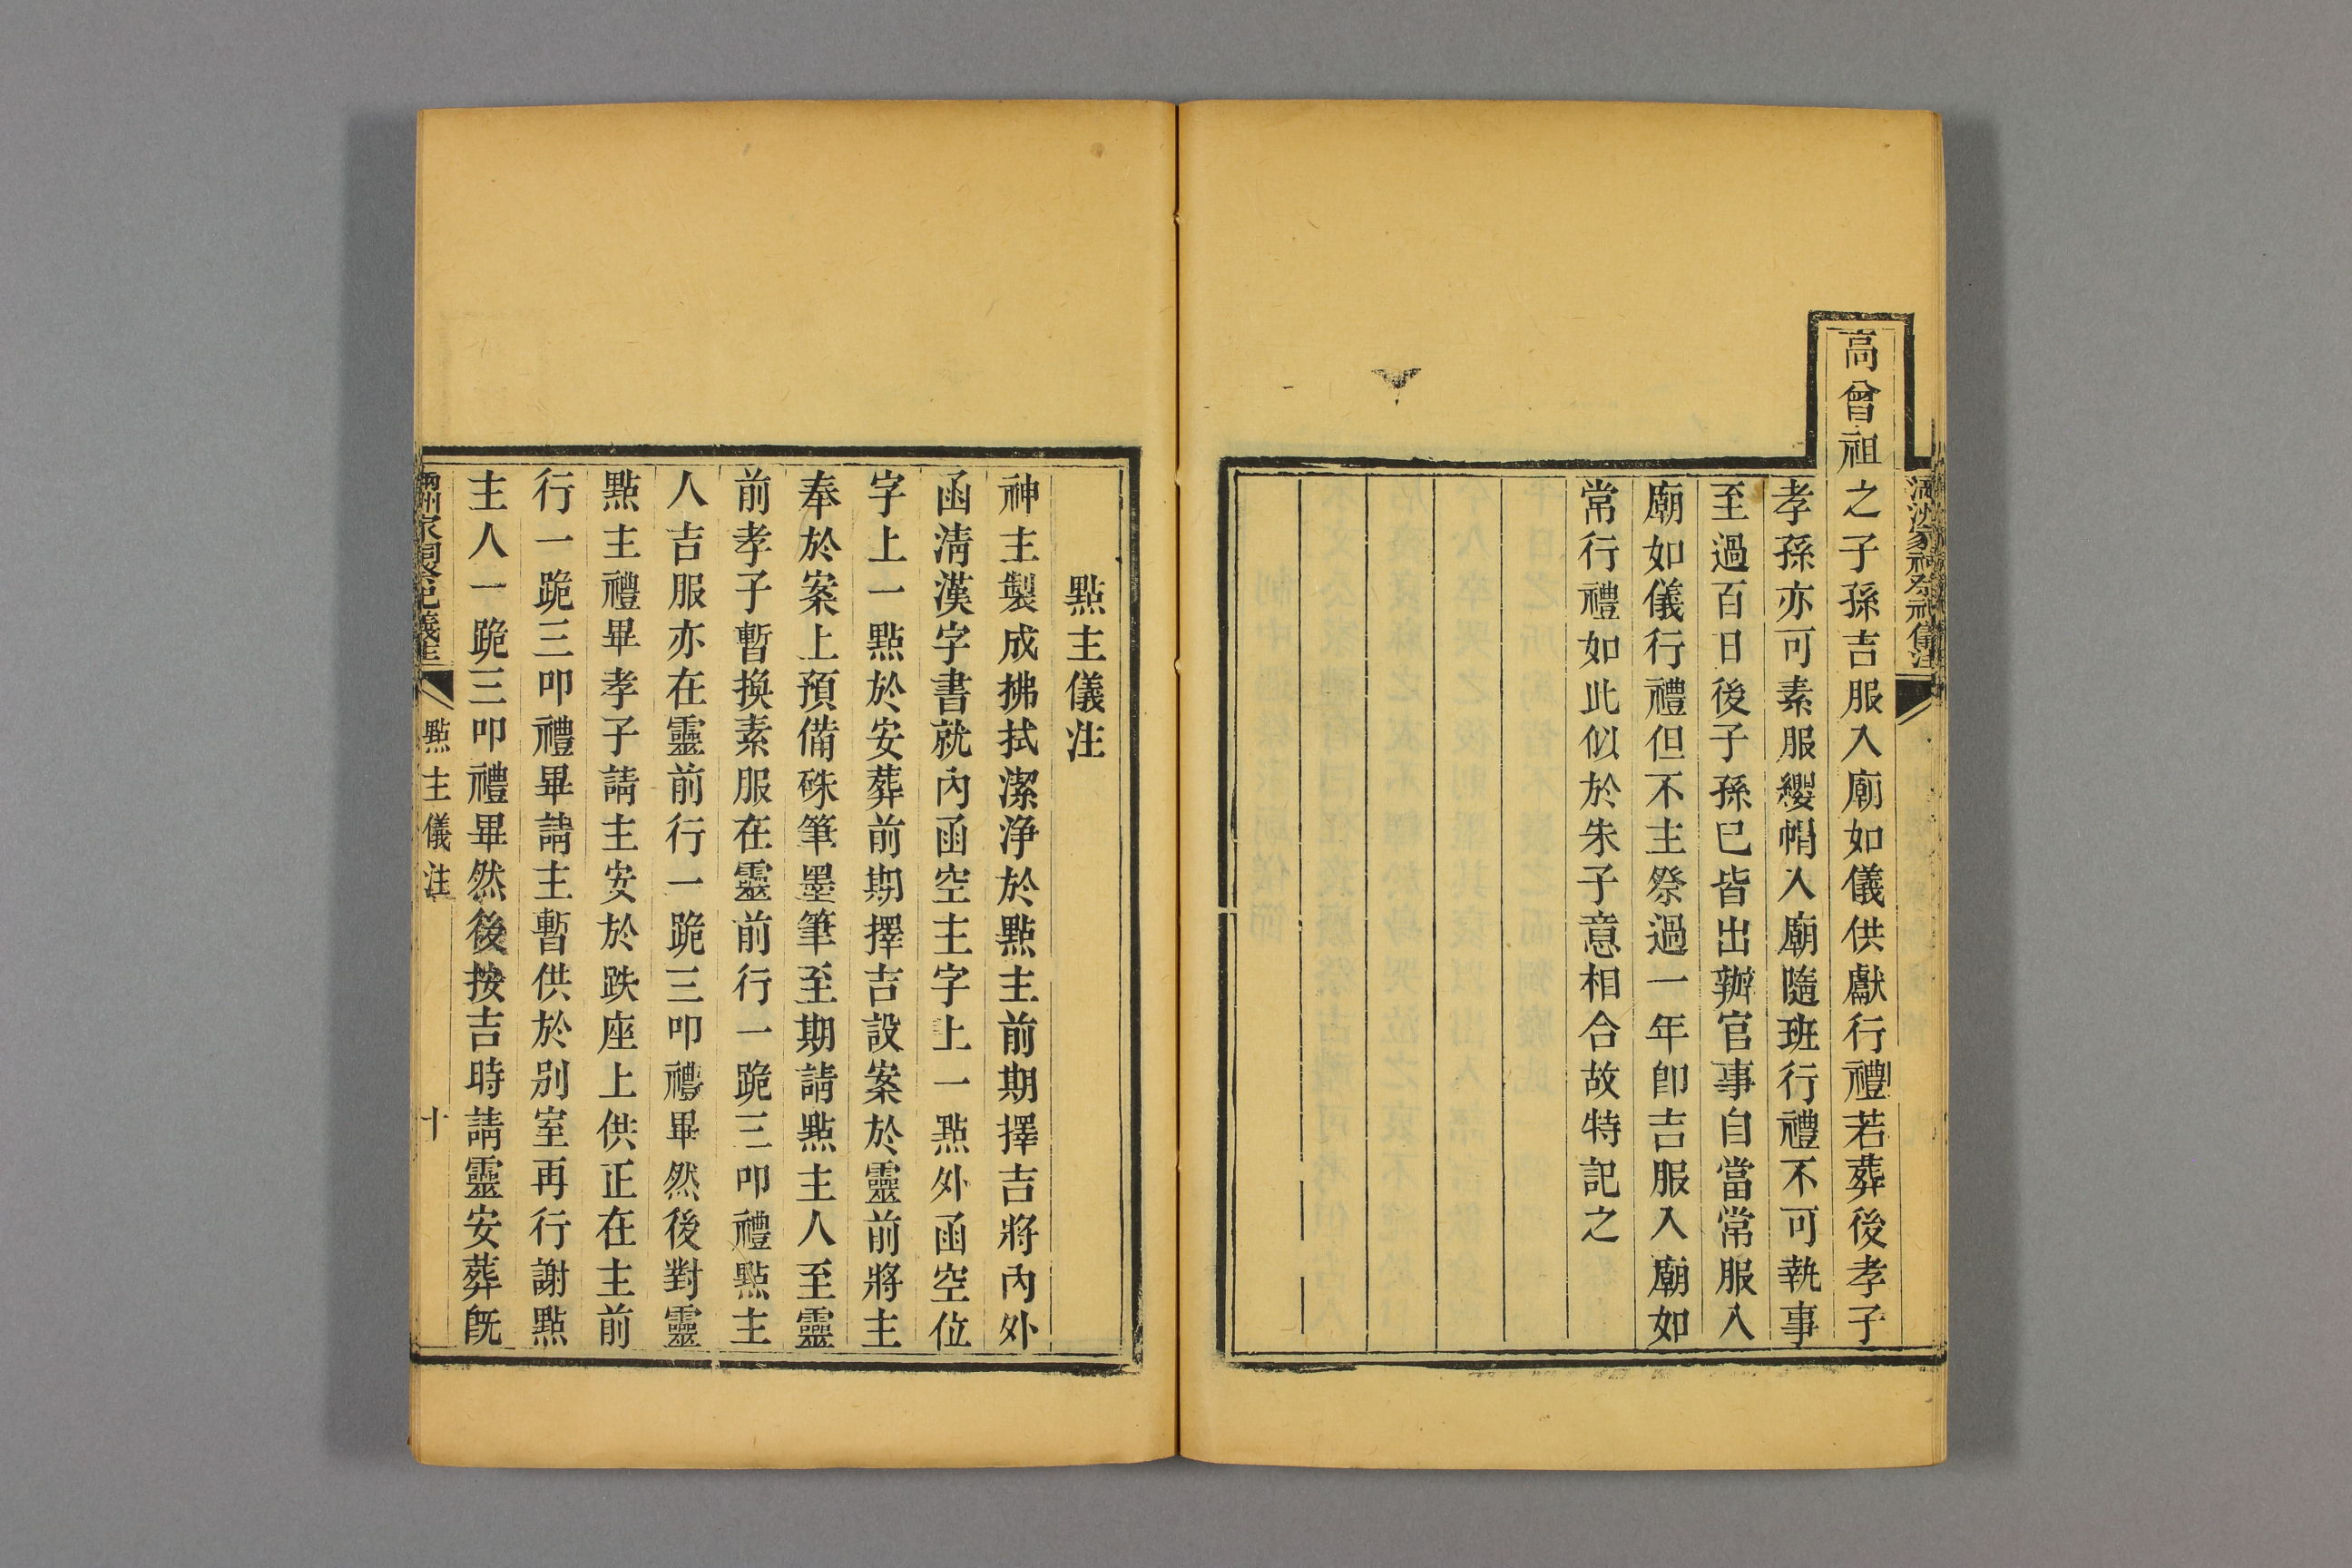 高曾祖之子孫吉服入廟如儀供獻行禮若葬後孝子
孝孫亦可素服纓帽入廟隨班行禮不可執事
至過百日後子孫已皆出辦官事自當常服入
廟如儀行禮但不主祭過一年卽吉服入廟如
常行禮如此似於朱子意相合故特記之
點主儀注
神主製成拂拭潔浄於點主前期擇吉將內外
函淸漢字書就內函空主字上一點外函空位
字上一點於安葬前期擇吉設案於靈前將主
奉於案上預備硃筆墨筆至期請點主人至靈
前孝子暫換素服在靈前行一跪三叩禮點主
人吉服亦在靈前行一跪三叩禮畢然後對靈
點主禮畢孝子請主安於趺座上供正在主前
行一跪三叩禮畢請主暫供於別室再行謝點
主人一跪三叩禮畢然後按吉時請靈安葬旣
滿洲家祠祭祀儀注
點主儀注
十